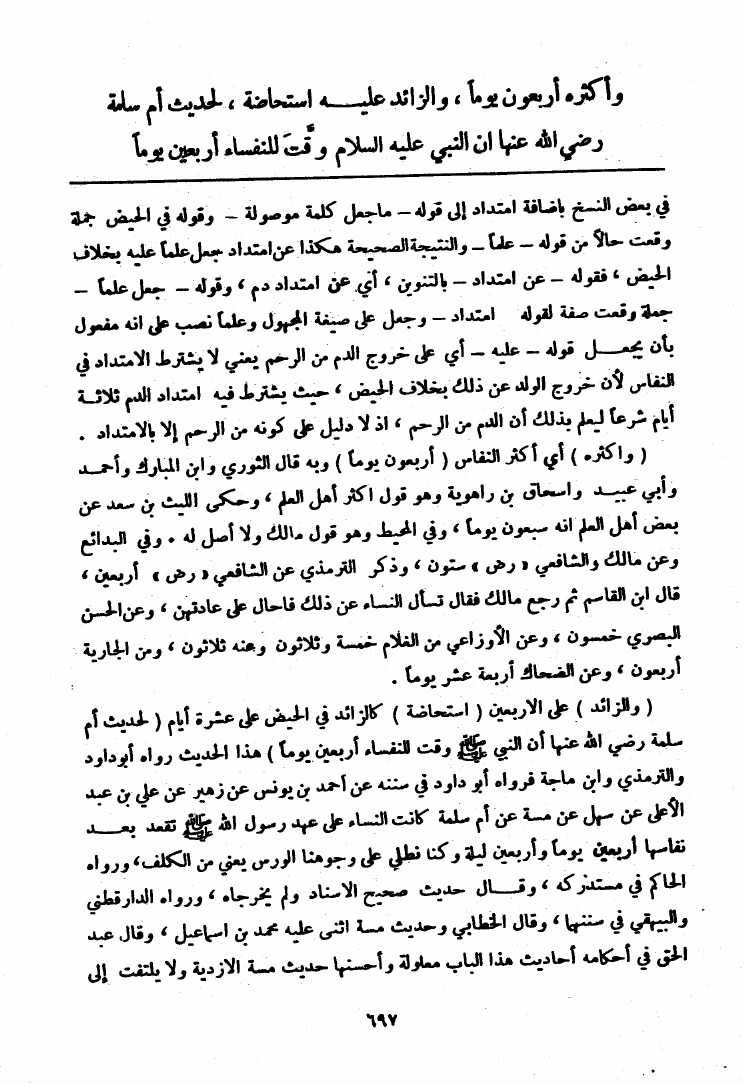 وأكثره أربعون يوماً ، والزائد عليـــه استحاضة ، لحديث أم سلمة
رضي الله عنها ان النبي عليه السلام وقَّتَ للنفساء أربعين يوماً
في بعض النسخ باضافة امتداد إلى قوله – ماجعل كلمة موصولة – وقوله في الحيض جملة
وقعت حالاً من قوله – علماً – والنتيجة الصحيحة هكذا عن امتداد جعل علماً عليه بخلاف
الحيض ، فقوله – عن امتداد – بالتنوين ، أي عن امتداد دم ، وقوله – جعل علماً –
جملة وقعت صفة لقوله امتداد – وجعل على صيغة المجهول وعلماً نصب على انه مفعول
بأن يجعـــل قوله – عليه – أي على خروج الدم من الرحم يعني لا يشترط الامتداد في
النفاس لأن خروج الولد عن ذلك بخلاف الحيض ، حيث يشترط فيه امتداد الدم ثلاثـة
أيام شرعاً ليعلم بذلك أن الدم من الرحم ، اذ لا دليل على كونه من الرحم إلا بالامتداد .
( واكثره ) أي أكثر النفاس ( أربعون يوماً ) وبه قال الثوري وابن المبارك وأحمـد
وأبي عبيـد واسحاق بن راهوية وهو قول اكثر أهل العلم ، وحكى الليث بن سعد عن
بعض أهل العلم انه سبعون يوماً ، وفي المحيط وهو قول مالك ولا أصل له . وفي البدائع
وعن مالك والشافعي « رض » ستون ، وذكر الترمذي عن الشافعي « رض » أربعين ،
قال ابن القاسم ثم رجع مالك فقال تسأل النساء عن ذلك فاحال على عادتهن ، وعن الحسن
البصري خمسون ، وعن الأوزاعي من الغلام خمسة وثلاثون وعنه ثلاثون ، ومن الجارية
أربعون ، وعن الضحاك أربعة عشر يوماً .
( والزائد ) على الاربعين ( استحاضة ) كالزائد في الحيض على عشرة أيام ( لحديث أم
سلمة رضي الله عنها أن النبي ﷺ وقت للنفساء أربعين يوماً ) هذا الحديث رواه أبو داود
والترمذي وابن ماجة فرواه أبو داود في سننه عن أحمد بن يونس عن زهير عن علي بن عبد
الأعلى عن سهل عن مسة عن أم سلمة كانت النساء على عهد رسول الله ﷺ تقعد بعـــد
نفاسها أربعين يوماً وأربعين ليلة وكنا نطلي على وجوهنا الورس يعني من الكلف ، ورواه
الحاكم في مستدركه ، وقـــال حديث صحيح الاسناد ولم يخرجاه ، ورواه الدارقطني
والبيهقي في سننهما ، وقال الخطابي وحديث مسة اثنى عليه محمد بن اسماعيل ، وقال عبد
الحق في أحكامه أحاديث هذا الباب معلولة وأحسنها حديث مسة الازدية ولا يلتفت إلى
٦٩٧